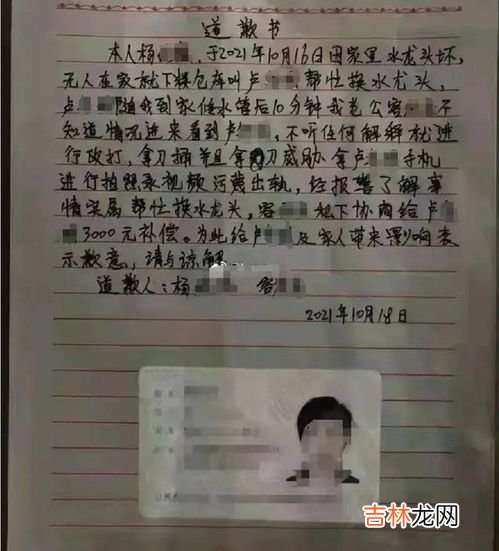 道歉书
本人杨 ,于2021年10月16日因家里水龙头坏,
无人在家就下粮仓库叫卢 帮忙换水龙头,
卢 随我到家修水管后10分钟我老公客 不
知道情况进来看到卢 ,不听任何解释就进
行攻打,拿刀捅并且拿刀威胁拿卢 手机
进行拍照录视频污蔑出轨,经报警了解事
情实属帮忙换水龙头,客 私下协商给卢
3000元补偿。为此给卢 及家人带来影响表
示歉意,请与谅解
道歉人:杨 客
2021年10月18日
吉林龙网